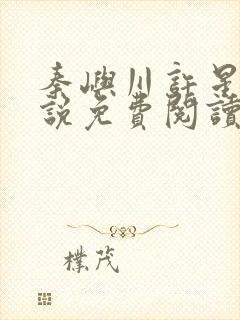 秦嶼川許是
說免費閱讀
樸茂